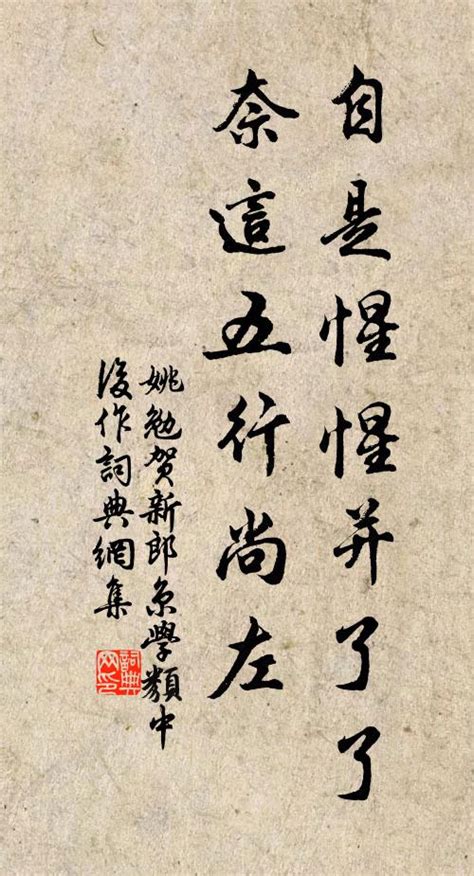 自是惺惺并了了
奈這五行尚左
姚勉賀新郎京學類中
後作詞典網集
詞典网印